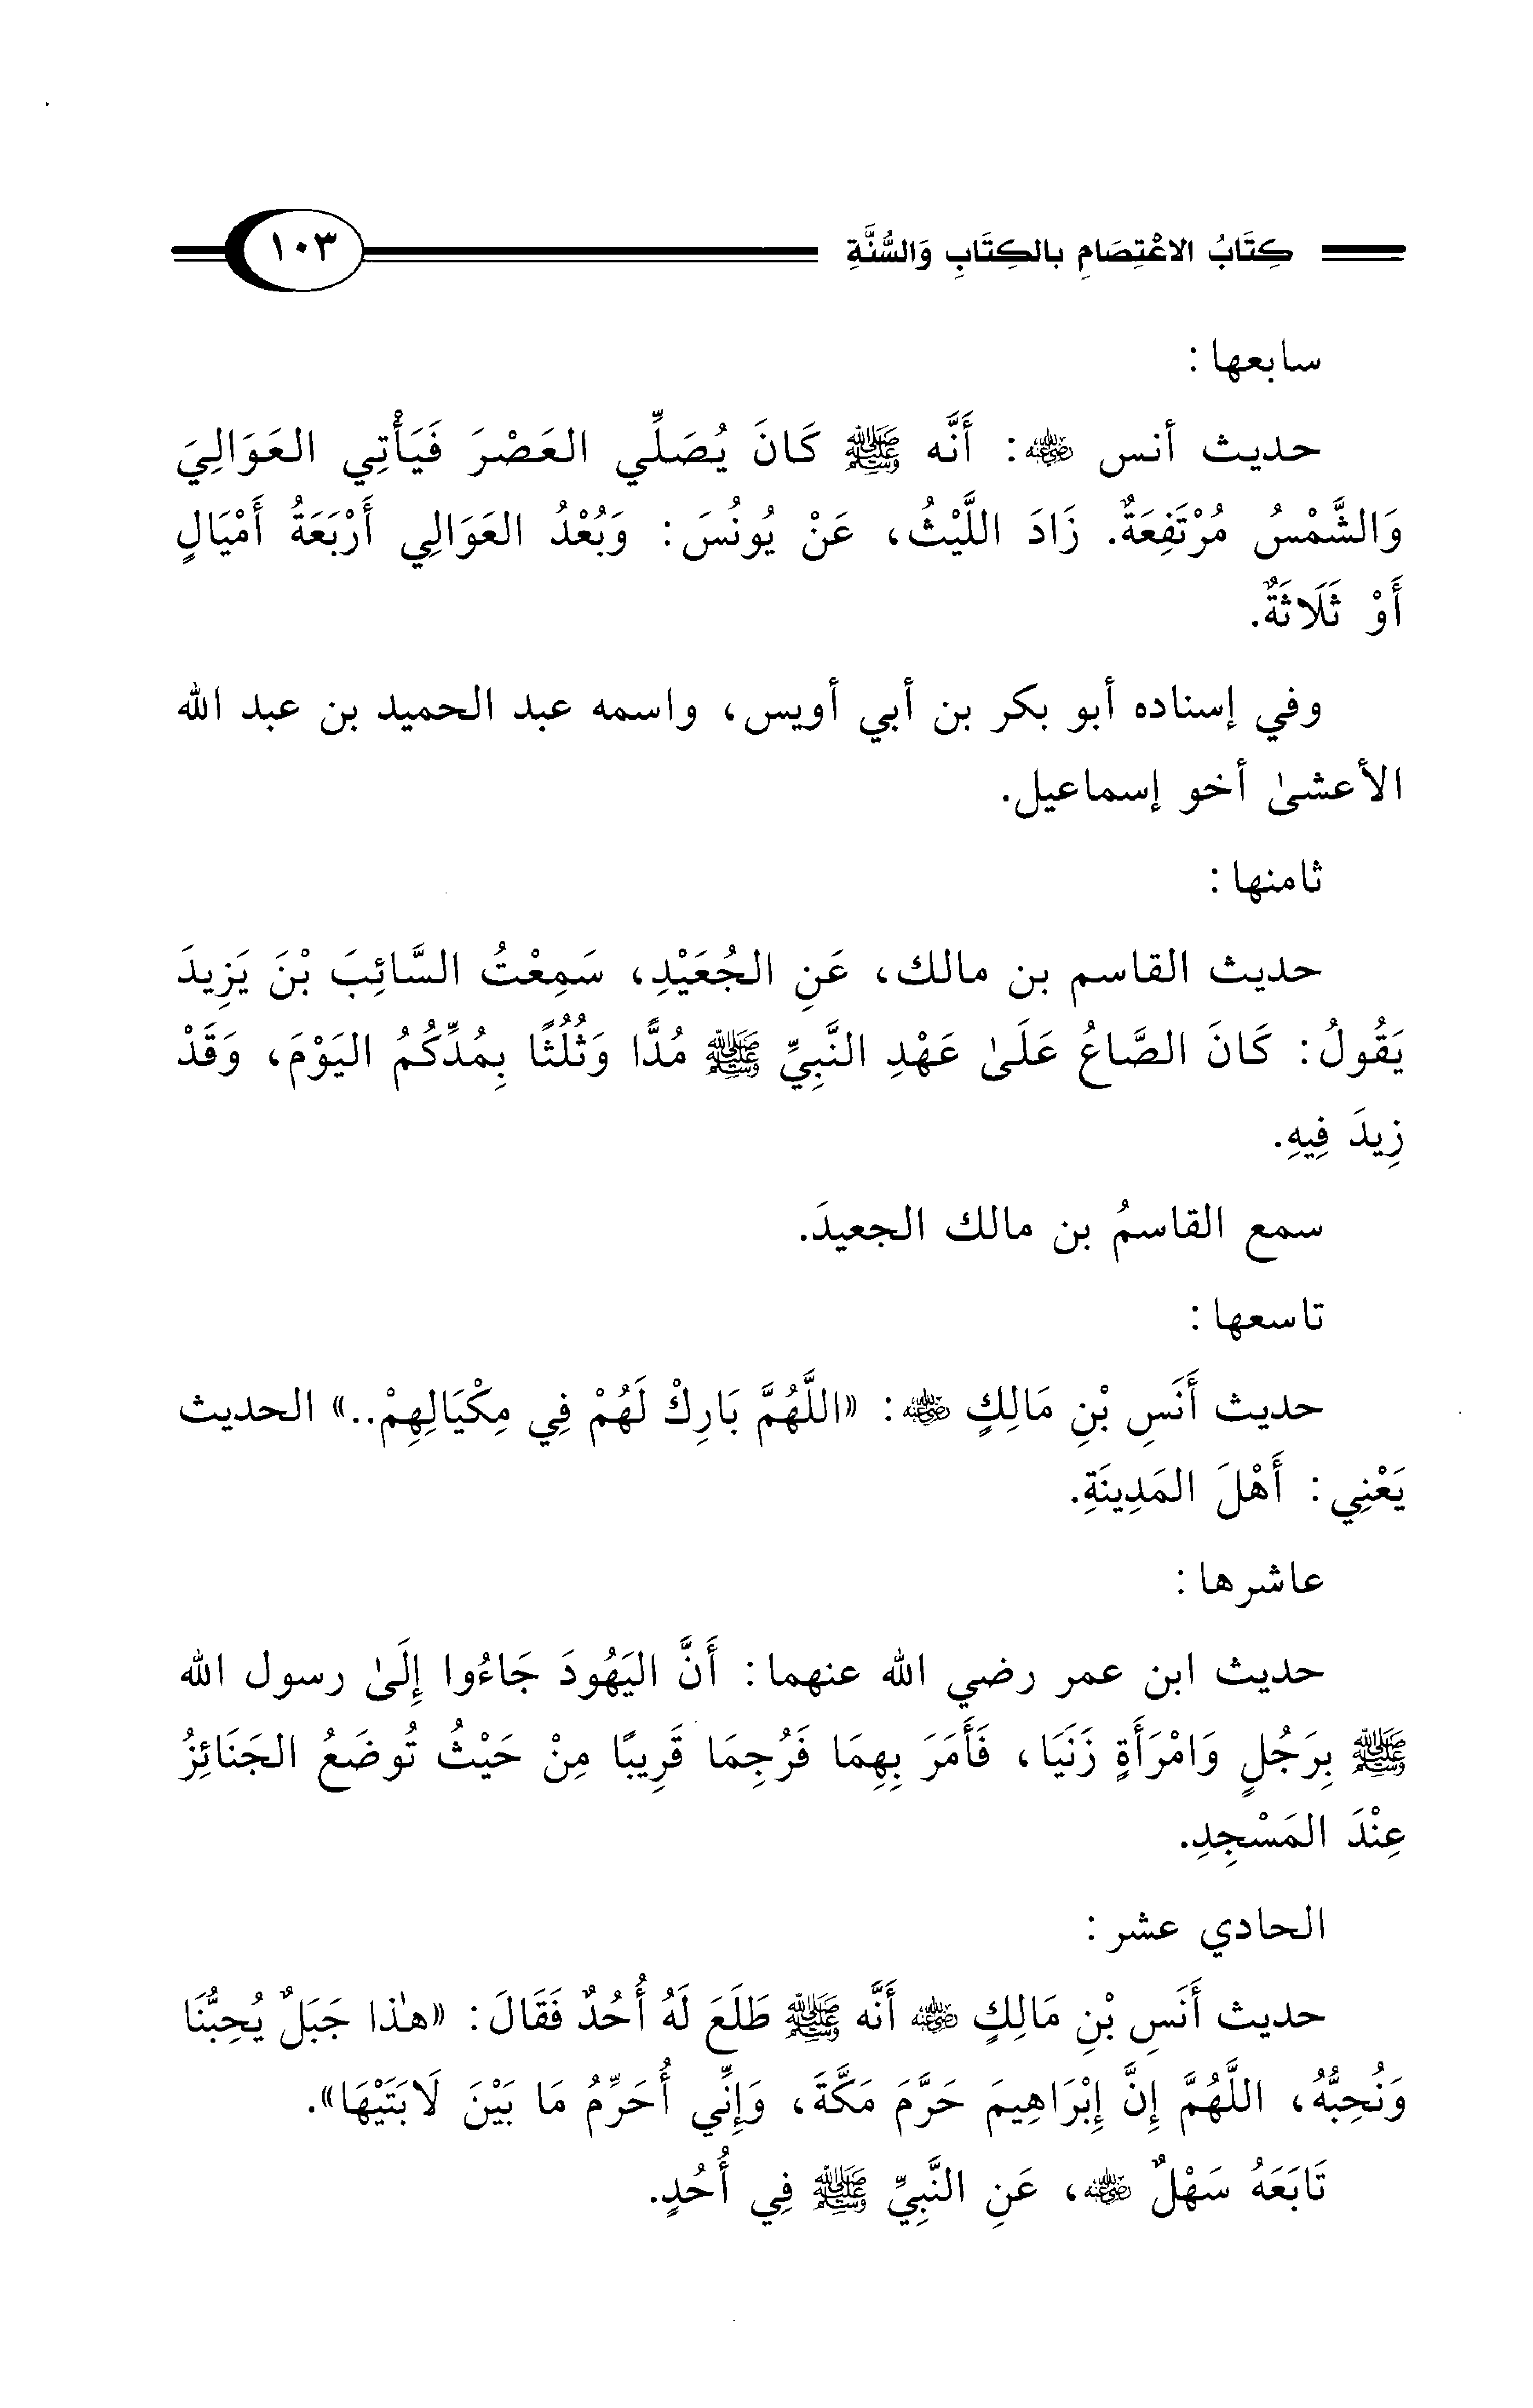 كِتَابُ الاعْتِصَامِ بالكِتَابِ وَالسُّنَّةِ ١٠٣
سابعها :
حديث أنس رضي الله عنه : أَنَّه ﷺ كَانَ يُصَلِّي العَصْرَ فَيَأْتِي العَوَالِيَ
وَالشَّمْسُ مُرْتَفِعَةٌ. زَادَ اللَّيْثُ، عَنْ يُونُسَ : وَبُعْدُ العَوَالِي أَرْبَعَةُ أَمْيَالٍ
أَوْ ثَلَاثَةٌ.
وفي إسناده أبو بكر بن أبي أويس، واسمه عبد الحميد بن عبد الله
الأعشىٰ أخو إسماعيل.
ثامنها :
حديث القاسم بن مالك، عَنِ الجُعَيْدِ، سَمِعْتُ السَّائِبَ بْنَ يَزِيدَ
يَقُولُ : كَانَ الصَّاعُ عَلَىٰ عَهْدِ النَّبِيِّ ﷺ مُدًّا وَثُلُثًا بِمُدِّكُمُ اليَوْمَ، وَقَدْ
زِيدَ فِيهِ.
سمع القاسمُ بن مالك الجعيدَ.
تاسعها :
حديث أَنَسِ بْنِ مَالِكٍ رضي الله عنه : «اللَّهُمَّ بَارِكْ لَهُمْ فِي مِكْيَالِهِمْ..» الحديث
يَعْنِي : أَهْلَ المَدِينَةِ.
عاشرها :
حديث ابن عمر رضي الله عنهما : أَنَّ اليَهُودَ جَاءُوا إِلَىٰ رسول الله
ﷺ بِرَجُلٍ وَامْرَأَةٍ زَنَيَا، فَأَمَرَ بِهِمَا فَرُجِمَا قَرِيبًا مِنْ حَيْثُ تُوضَعُ الجَنَائِزُ
عِنْدَ المَسْجِدِ.
الحادي عشر :
حديث أَنَسِ بْنِ مَالِكٍ رضي الله عنه أَنَّه ﷺ طَلَعَ لَهُ أُحُدٌ فَقَالَ : «هٰذا جَبَلٌ يُحِبُّنَا
وَنُحِبُّهُ، اللَّهُمَّ إِنَّ إِبْرَاهِيمَ حَرَّمَ مَكَّةَ، وَإِنِّي أُحَرِّمُ مَا بَيْنَ لَابَتَيْهَا».
تَابَعَهُ سَهْلٌ رضي الله عنه، عَنِ النَّبِيِّ ﷺ فِي أُحُدٍ.